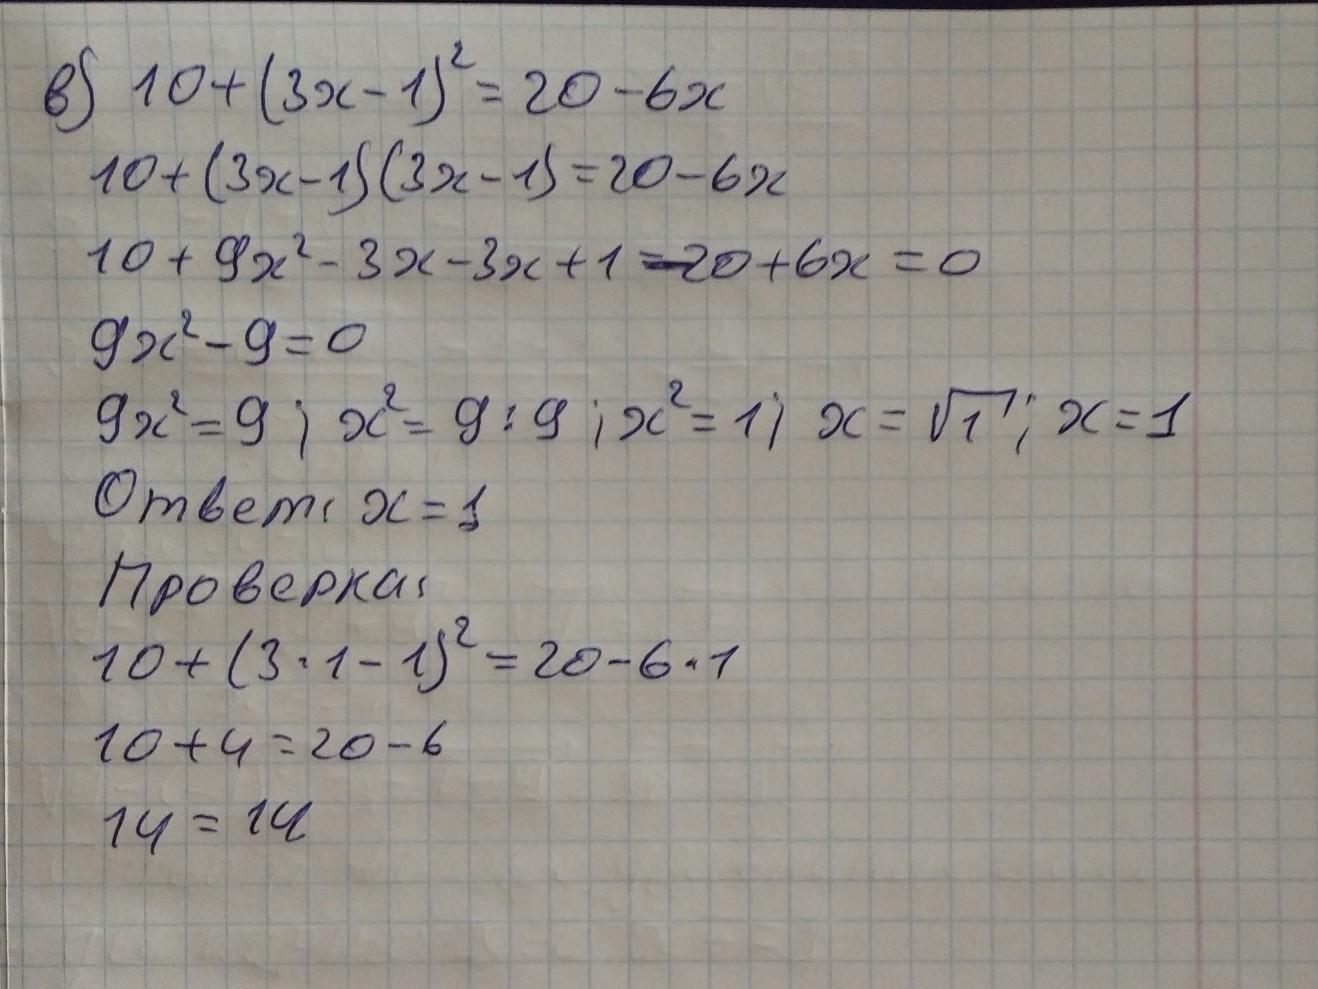 в) 10+(3x-1)²=20-6x
10+(3x-1)(3x-1)=20-6x
10+9x²-3x-3x+1-20+6x=0
9x²-9=0
9x²=9; x²=9:9; x²=1; x=√1; x=1
Ответ: x=1
Проверка:
10+(3·1-1)²=20-6·1
10+4=20-6
14=14